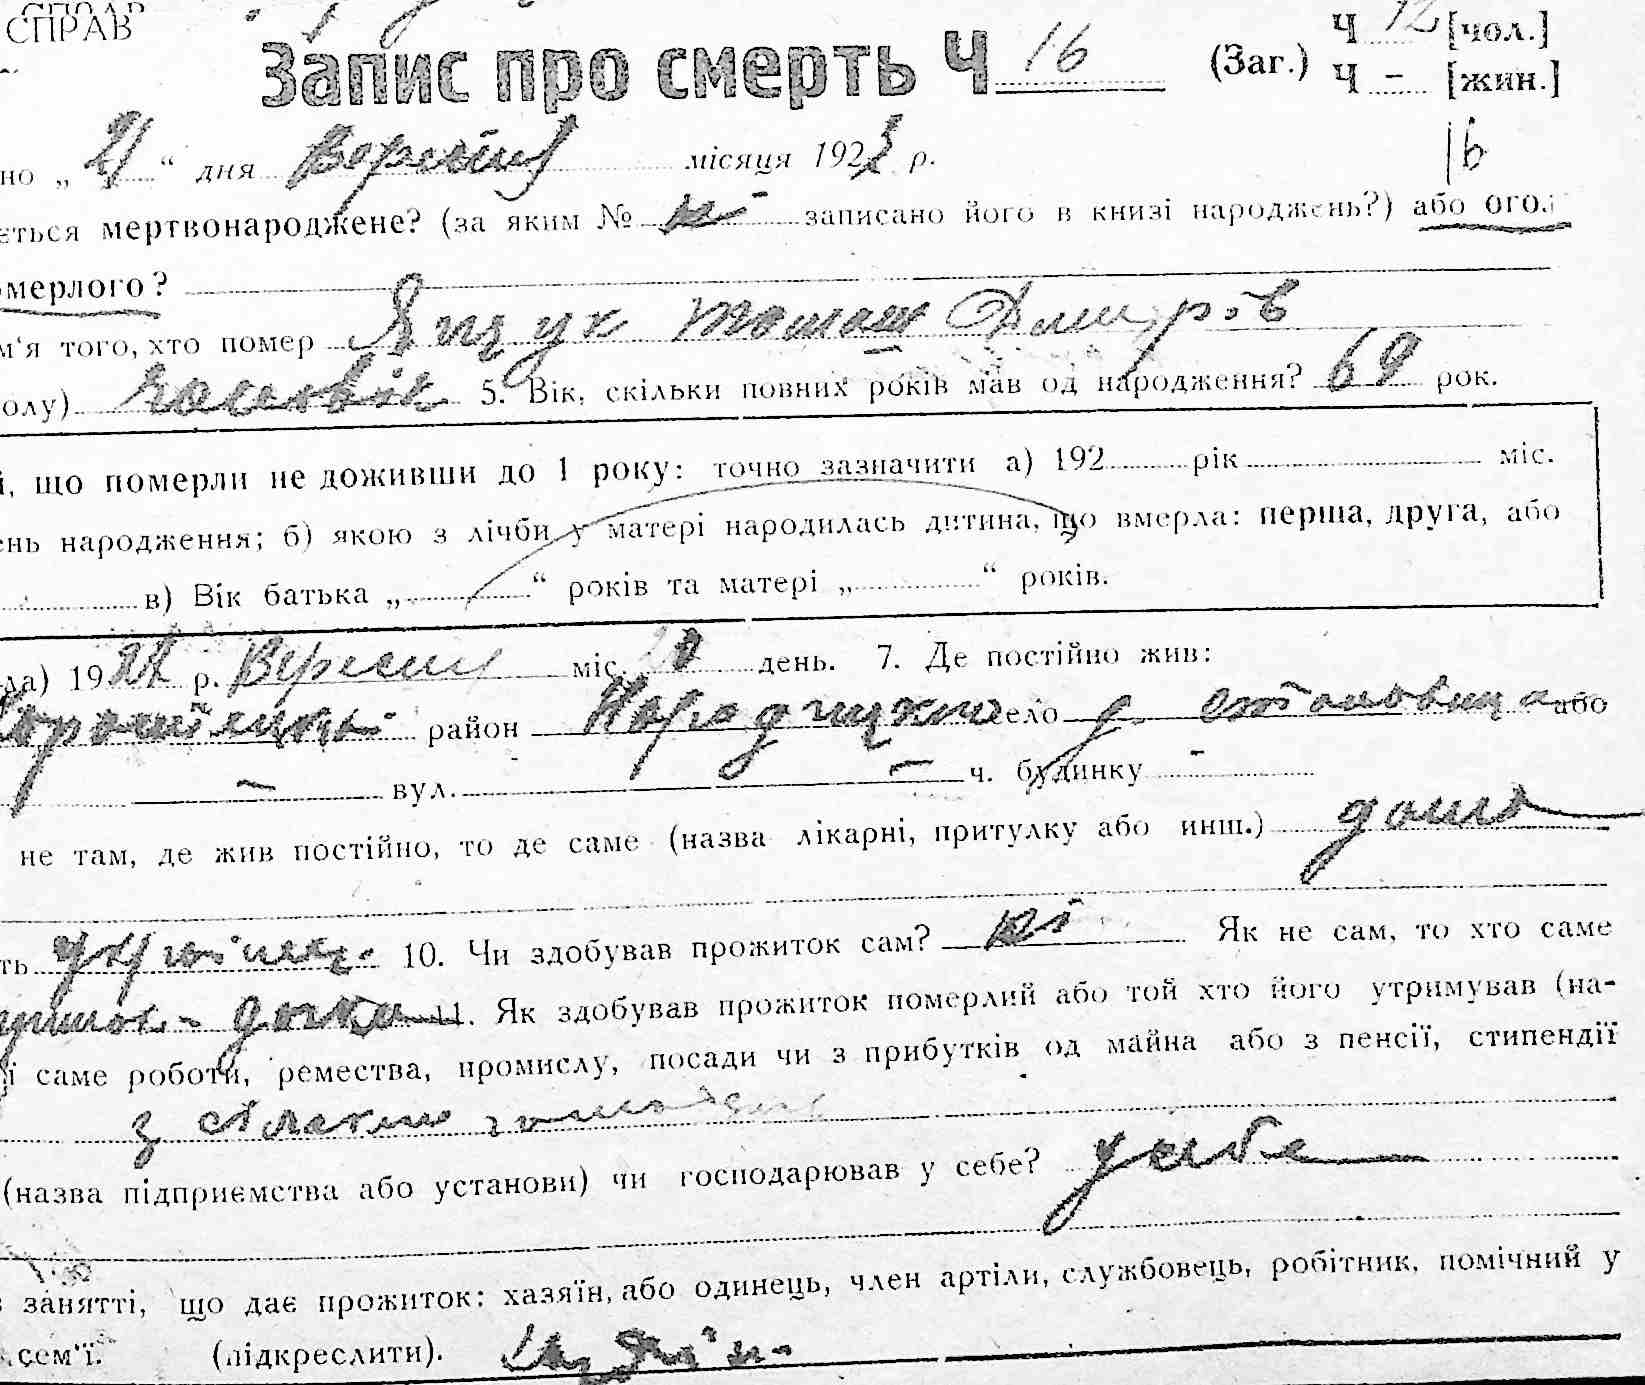 СПРАВ
Запис про смерть Ч 16 (Заг.) Ч 12 [чол.]
Ч - [жин.]
16
но „ 21 “ дня вересня місяця 192 р.
ється мертвонароджене? (за яким № ні записано його в книзі народжень?) або огол
омерлого?
м'я того, хто помер Ящук Томаш Дмитров
олу) чоловік 5. Вік, скільки повних років мав од народження? 69 рок.
і, що померли не доживши до 1 року: точно зазначити а) 192 рік міс.
ень народження; б) якою з лічби у матері народилась дитина, що вмерла: перша, друга, або
в) Вік батька „ “ років та матері „ “ років.
ла) 19 р. Вересня міс. 20 день. 7. Де постійно жив:
район Народицький село або
- вул. - ч. будинку -
не там, де жив постійно, то де саме (назва лікарні, притулку або инш.) дома
ть 10. Чи здобував прожиток сам? ні Як не сам, то хто саме
дочка 11. Як здобував прожиток померлий або той хто його утримував (на-
ї саме роботи, ремества, промислу, посади чи з прибутків од майна або з пенсії, стипендії
з
(назва підприємства або установи) чи господарював у себе? у себе
занятті, що дає прожиток: хазяїн, або одинець, член артіли, службовець, робітник, помічний у
сем'ї. (підкреслити). хазяїн